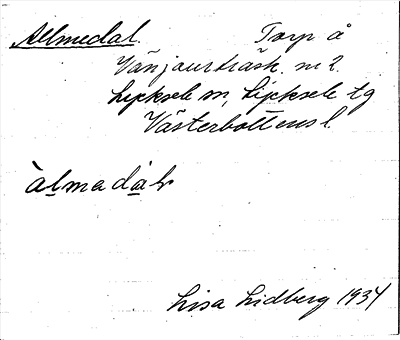 Allmedal. Torp å
Vänjaurträsk nr 2.
Lycksele sn, Lycksele tg
Västerbottens l.
àlmadàl
Lisa Lidberg 1934